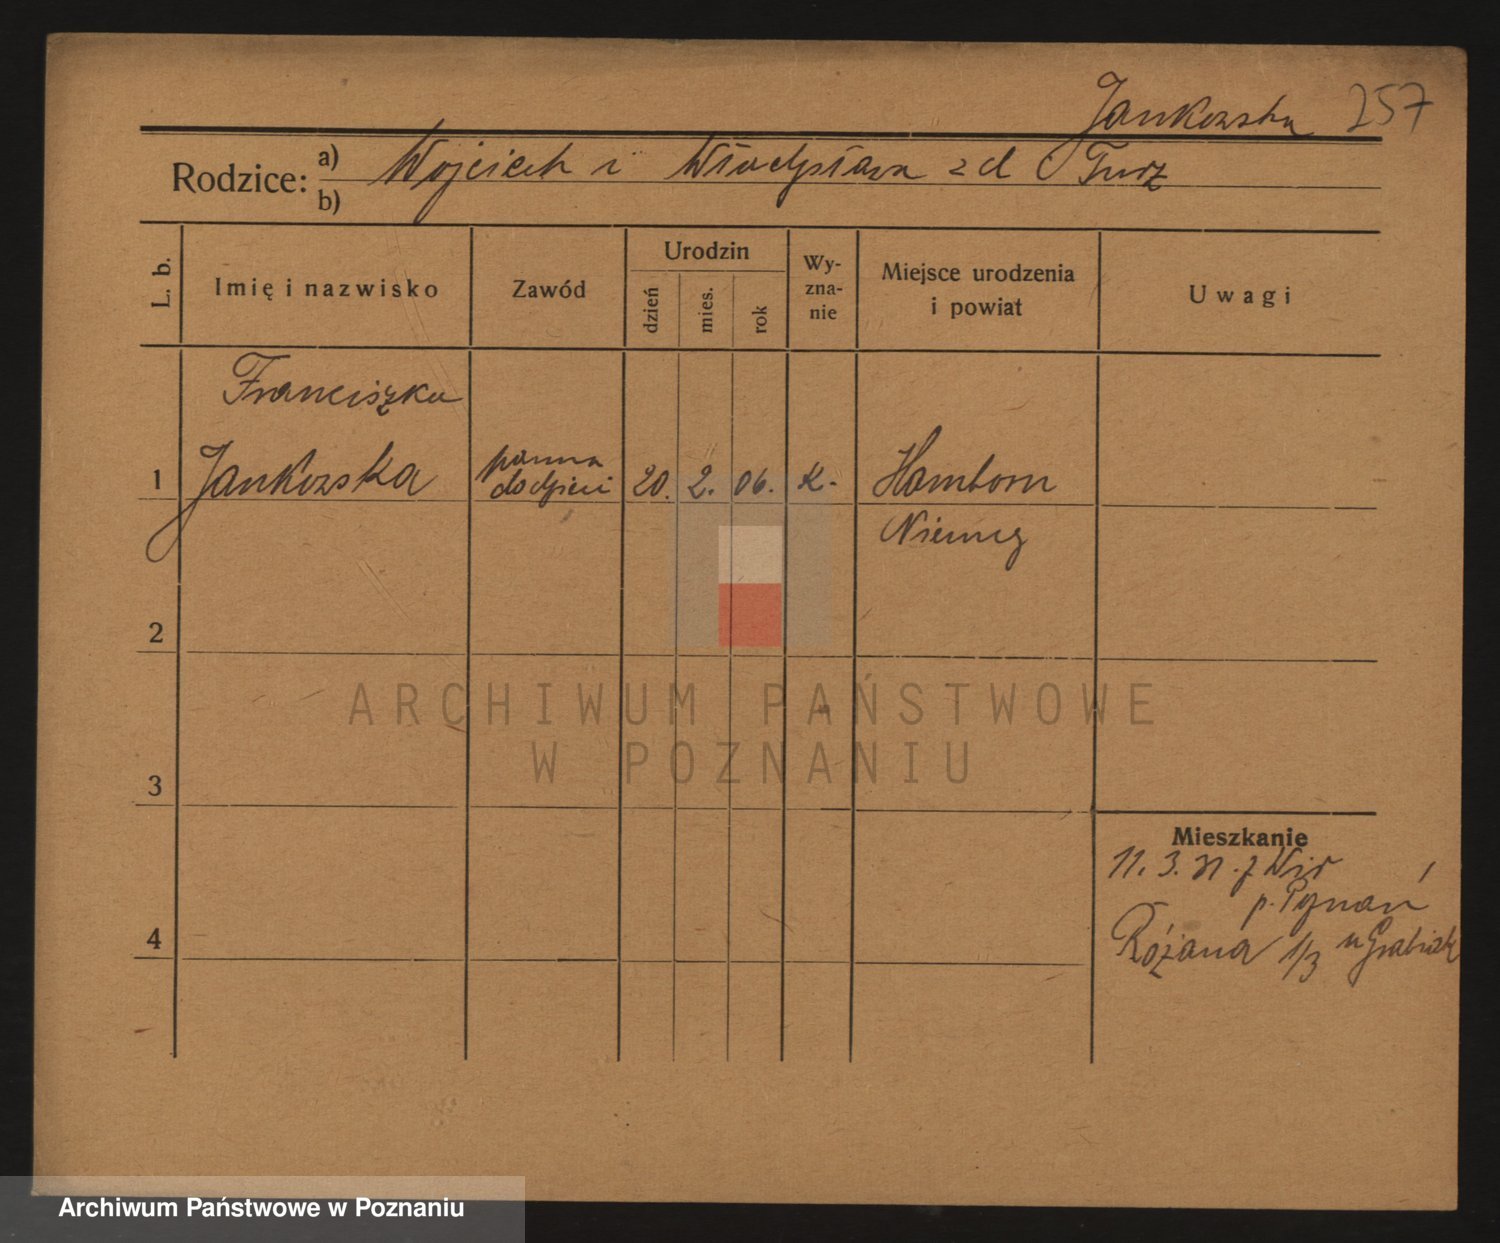 Jankowska 257
Rodzice: a) Wojciech i Władysława z d Turz
b)
L. b. Imię i nazwisko Zawód Urodzin dzień mies. rok Wy-zna-nie Miejsce urodzenia i powiat Uwagi
Franciszka
1 Jankowska panna do dzieci 20. 2. 06. K. Hamborn
Niemcy
2
ARCHIWUM PAŃSTWOWE
W POZNANIU
3
Mieszkanie
11. 3. 31. z
p. Poznań
4 Różana 1/3 u
Archiwum Państwowe w Poznaniu